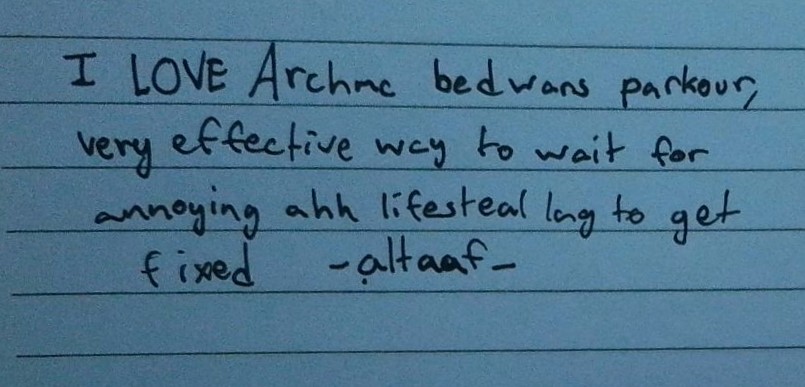 I LOVE Archmc bedwars parkour,
very effective way to wait for
annoying ahh lifesteal lag to get
fixed -altaaf-